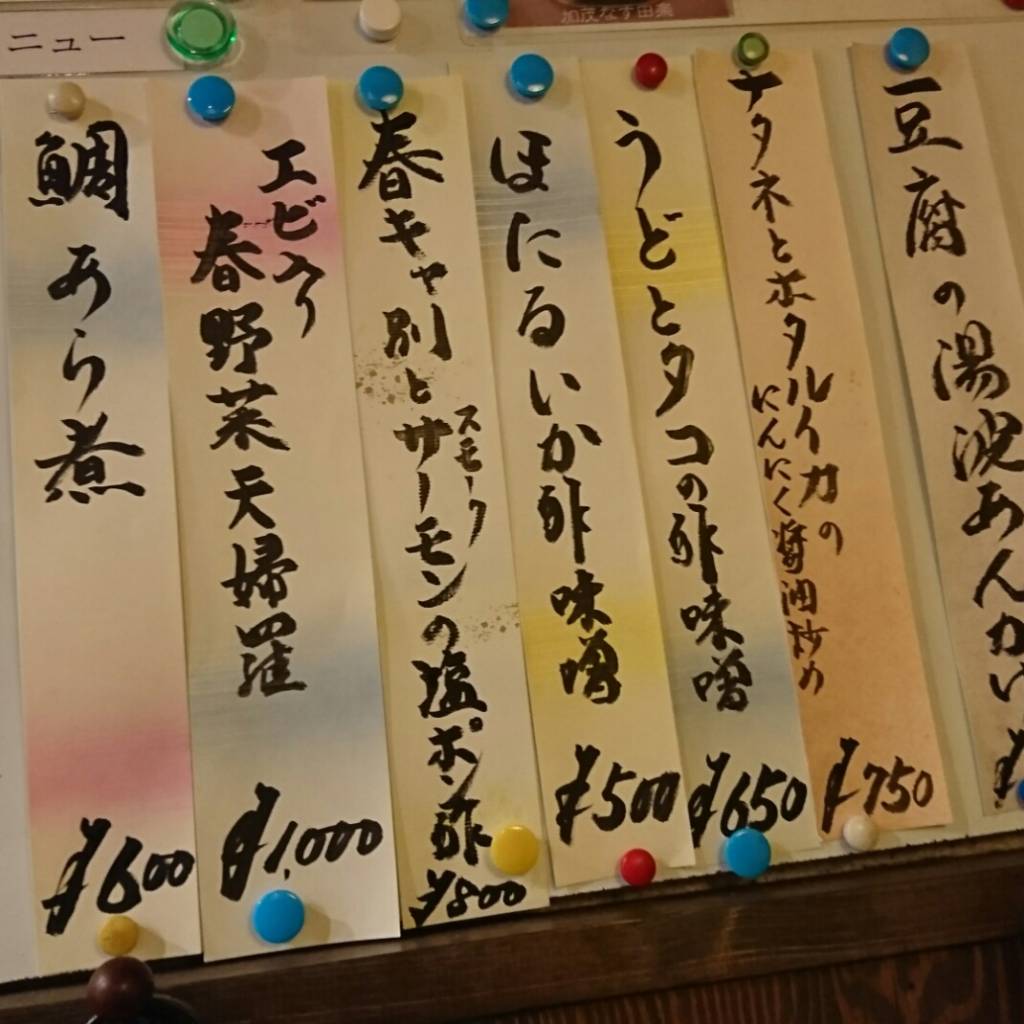 ニュー
加茂なす田楽
豆腐の湯波あんか
ナタネとホタルイカの
にんにく醤油炒め
¥750
うどとタコの酢味噌
¥650
ほたるいか酢味噌
¥500
春キャ別と
スモーク
サーモンの塩ポン酢
¥800
エビ入り
春野菜天婦羅
¥1,000
鯛あら煮
¥600